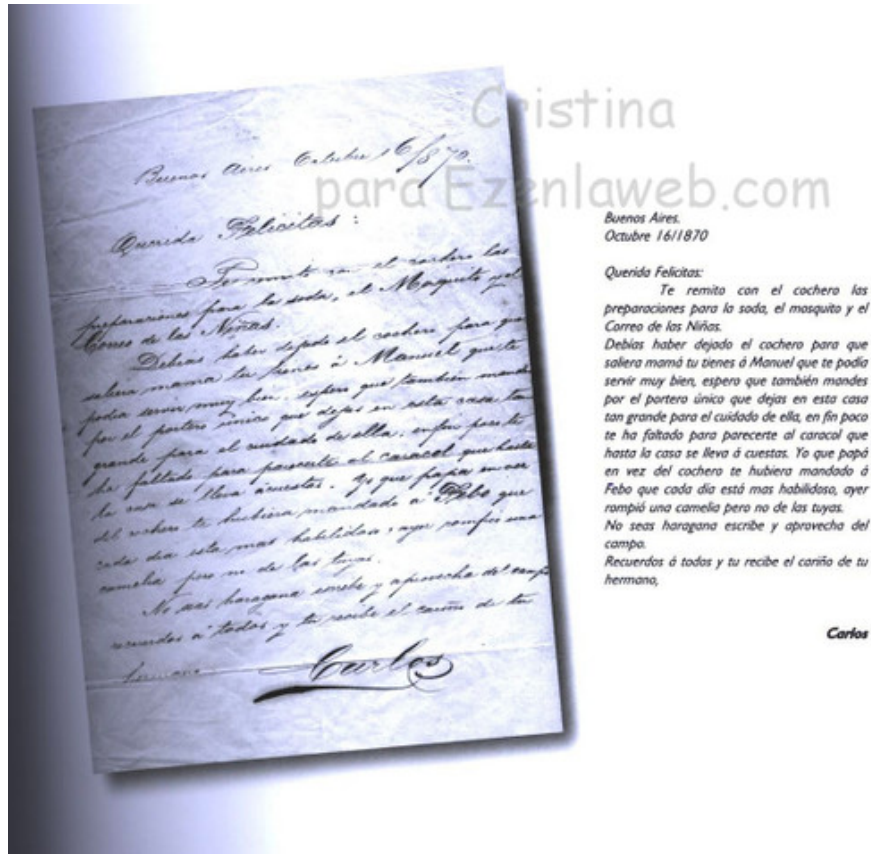 Cristina
para Ezenlaweb.com
Buenos Aires Octubre 16/870.
Querida Felicitas:
Te remito con el cochero las
preparaciones para la soda, el Mosquito y el
Correo de las Niñas.
Debias haber dejado el cochero para que
saliera mama tu tienes á Manuel que te
podia servir muy bien, espero que tambien mandes
por el portero único que dejas en esta casa tan
grande para el cuidado de ella, en fin poco te
ha faltado para parecerte al caracol que hasta
la casa se lleva ácuestas. Yo que papa en vez
del cochero te hubiera mandado a Febo que
cada dia esta mas habilidoso, ayer rompió una
camelia pero no de las tuyas.
No seas haragana escribe y aprovecha del campo
recuerdos a todos y tu recibe el cariño de tu
hermano
Carlos
Buenos Aires.
Octubre 16/1870
Querida Felicitas:
Te remito con el cochero las
preparaciones para la soda, el mosquito y el
Correo de las Niñas.
Debías haber dejado el cochero para que
saliera mamá tu tienes á Manuel que te podía
servir muy bien, espero que también mandes
por el portero único que dejas en esta casa
tan grande para el cuidado de ella, en fin poco
te ha faltado para parecerte al caracol que
hasta la casa se lleva á cuestas. Yo que papá
en vez del cochero te hubiera mandado á
Febo que cada día está mas habilidoso, ayer
rompió una camelia pero no de las tuyas.
No seas haragana escribe y aprovecha del
campo.
Recuerdos á todos y tu recibe el cariño de tu
hermano,
Carlos